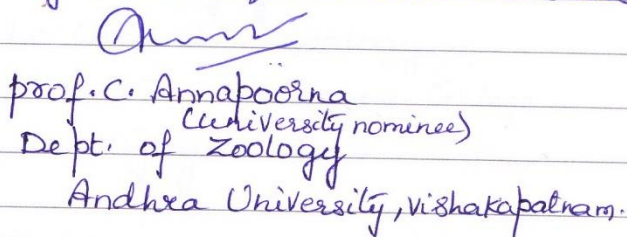 prof. C. Annapoorna
(university nominee)
Dept. of Zoology
Andhra University, vishakapatnam.